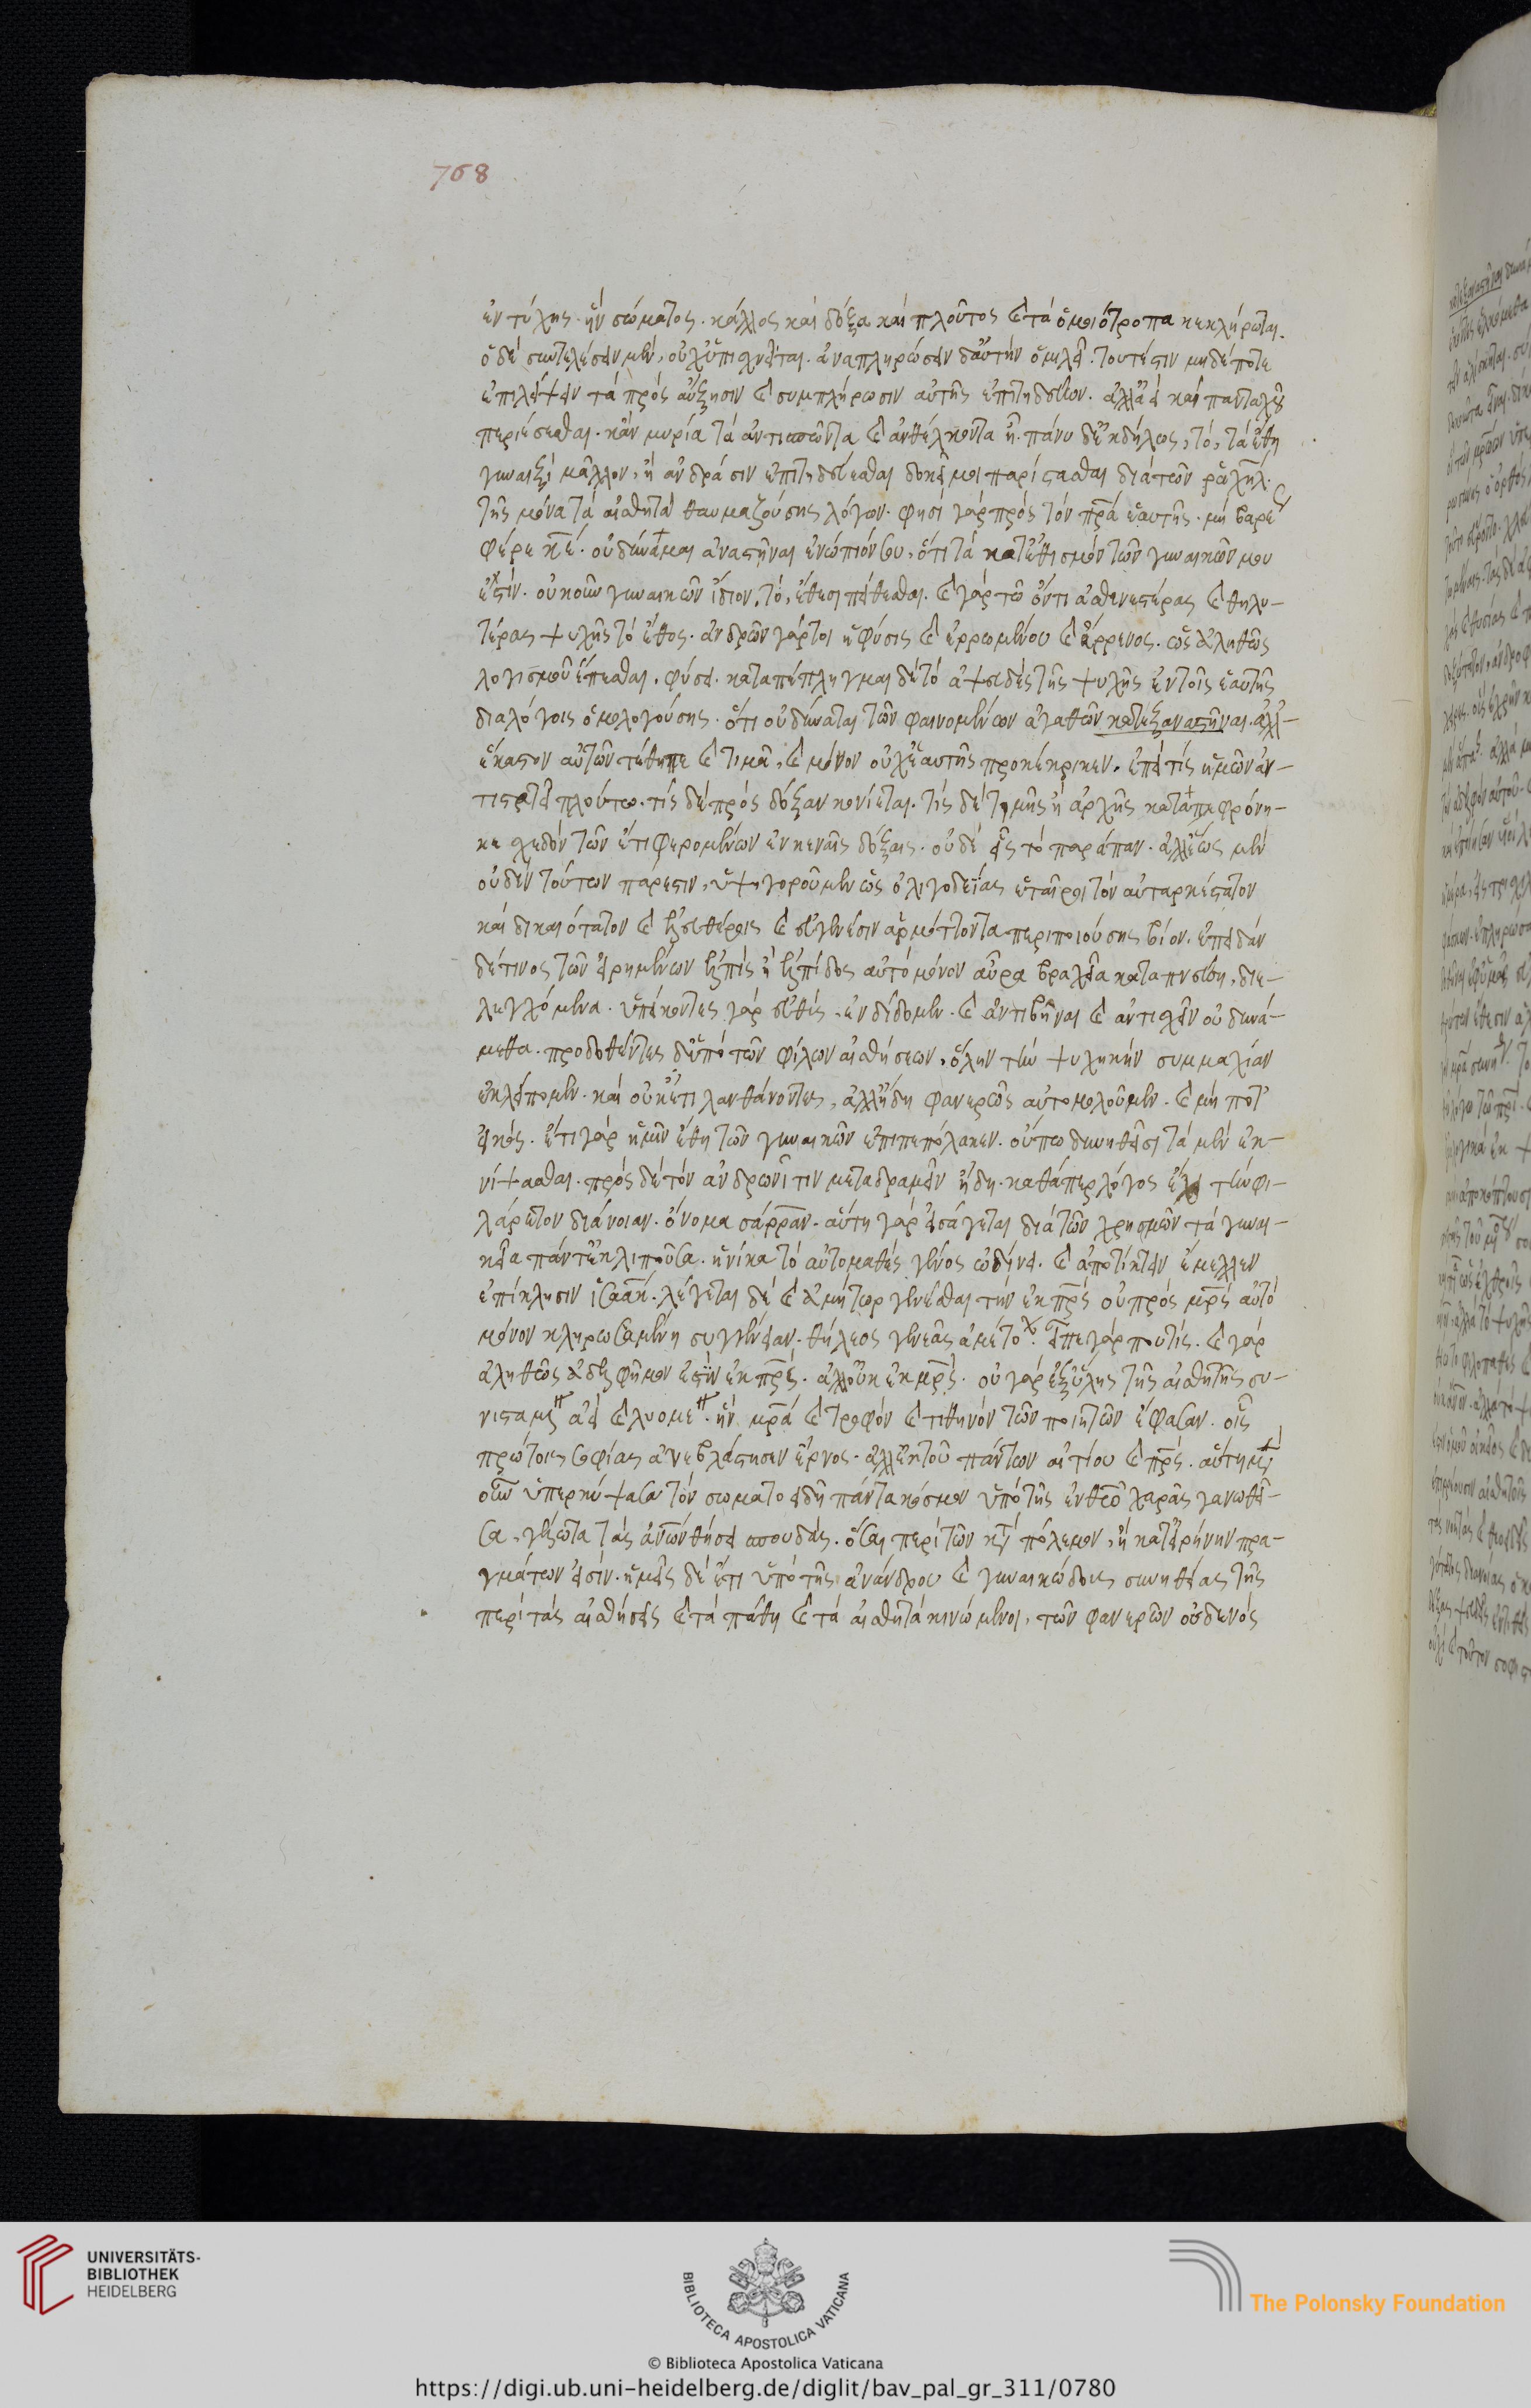 ἐν τύχης. ἢν σώματος. κάλλος καὶ δόξα καὶ πλοῦτος καὶ τὰ ὁμοιότροπα κεκλήρωται.
ὁ δὲ συντελέσειν μὲν, οὐχ ὑπισχνεῖται. ἀναπληρώσειν δ᾽αὐτὴν ὁμιλεῖ. τουτέστιν μηδέποτε
ἐπιλείψειν τὰ πρὸς αὔξησιν καὶ συμπλήρωσιν αὐτῆς ἐπιτηδεύων. ἀλλ᾽ἀεὶ καὶ πανταχοῦ
περιέσεσθαι. κἂν μυρία τὰ ἀντισπῶντα καὶ ἀνθέλκοντα ᾖ. πάνυ δ᾽ἐκδήλως, τὸ, τὰ ἔθη
γυναιξὶ μᾶλλον, ἢ ἀνδράσιν ἐπιτηδεύεσθαι δοκεῖ μοι παρίστασθαι διὰ τῶν ῥαχὴλ.
τῆς μόνα τὰ αἰσθητὰ θαυμαζούσης λόγων. φησὶ γὰρ πρὸς τὸν πρα ἑαυτῆς. μὴ βαρέως
φέρε κε. οὐ δύναμαι ἀναστῆναι ἐνώπιόν σου, ὅτι τὰ κατ᾽ἐθισμὸν τῶν γυναικῶν μου
ἐστίν. οὐκοῦν γυναικῶν ἴδιον, τὸ, ἔθεσι πείθεσθαι. καὶ γὰρ τῷ ὄντι ἀσθενεστέρας καὶ θηλυ-
τέρας ψυχῆς τὸ ἔθος. ἀνδρῶν γάρ τοι ἡ φύσις καὶ ἐρρωμένου καὶ ἄρρενος. ὡς ἀληθῶς
λογισμοῦ ἕπεσθαι, φύσει. καταπέπληγμαι δὲ τὸ ἀψευδὲς τῆς ψυχῆς ἐν τοῖς ἑαυτῆς
διαλόγοις ὁμολογούσης. ὅτι οὐ δύναται τῶν φαινομένων ἀγαθῶν κατεξαναστῆναι. ἀλλ᾽-
ἕκαστον αὐτῶν τέθηπε καὶ τιμᾷ, καὶ μόνον οὐχ ἑαυτῆς προκέκρικεν. ἐπεὶ τίς ἡμῶν ἀν-
τιστατεῖ πλούτῳ. τίς δὲ πρὸς δόξαν κονίεται. τίς δὲ τιμῆς ἢ ἀρχῆς καταπεφρόνη-
κε σχεδὸν τῶν ἔτι φερομένων ἐν κεναῖς δόξαις. οὐδὲ εἷς τὸ παράπαν. ἀλλ᾽ἕως μὲν
οὐδὲν τούτων πάρεστιν, ὑψηγοροῦμεν ὡς ὀλιγοδεΐας ἑταῖροι τὸν αὐταρκέστατον
καὶ δικαιότατον καὶ ἐλευθέροις καὶ εὐγενέσιν ἁρμόττοντα περιποιούσης βίον. ἐπειδὰν
δέ τινος τῶν εἰρημένων ἐλπὶς ἢ ἐλπίδος αὐτὸ μόνον αὔρα βραχεῖα καταπνεύσῃ, διε-
λεγχόμεθα. ὑπείκοντες γὰρ εὐθὺς. ἐνδίδομεν. καὶ ἀντιβῆναι καὶ ἀντισχεῖν οὐ δυνά-
μεθα. προδοθέντες δ᾽ὑπὸ τῶν φίλων αἰσθήσεων, ὅλην τὴν ψυχικὴν συμμαχίαν
ἐκλείπομεν. καὶ οὐκέτι λανθάνοντες, ἀλλ᾽ἤδη φανερῶς αὐτομολοῦμεν. καὶ μή ποτ᾽
εἰκός. ἔτι γὰρ ἡμῖν ἔθη τῶν γυναικῶν ἐπιπεπόλακεν. οὔπω δυνηθεῖσι τὰ μὲν ἐκ-
νίψασθαι. πρὸς δὲ τὸν ἀνδρωνῖτιν μεταδραμεῖν ἤδη. καθάπερ λόγος ἔχει τὴν φι-
λάρετον διάνοιαν. ὄνομα σάρραν. αὕτη γὰρ εἰσάγεται διὰ τῶν χρησμῶν τὰ γυναι-
κεῖα πάντ᾽ἐκλιποῦσα. ἡνίκα τὸ αὐτομαθὲς γένος ὠδίνει. καὶ ἀποτίκτειν ἔμελλεν
ἐπίκλησιν ἰσαάκ. λέγεται δὲ καὶ ἀμήτωρ γενέσθαι τὴν ἐκ πρς οὐ πρὸς μρς αὐτὸ
μόνον κληρωσαμένη συγγένειαν. θήλεος γενεᾶς ἀμέτοχ. εἶπε γάρ πού τις. καὶ γὰρ
ἀληθῶς ἀδελφή μου ἐστὶν ἐκ πρς. ἀλλ᾽οὐκ ἐκ μρς. οὐ γὰρ ἐξ ὕλης τῆς αἰσθητῆς συ-
νισταμε ἀεὶ καὶ λυομε. ἣν μρα καὶ τροφὸν καὶ τιθηνὸν τῶν ποιητῶν ἔφασαν. οἷς
πρώτοις σοφίας ἀνεβλάστησεν ἔρνος. ἀλλ᾽ἐκ τοῦ πάντων αἰτίου καὶ πρς. αὕτη μὲν
οὖν ὑπερκύψασα τὸν σωματοειδῆ πάντα κόσμον ὑπὸ τῆς ἐν θεῷ χαρᾶς γανωθεῖ-
σα, γέλωτα τὰς ἀνων θήσει σπουδάς. ὅσαι περὶ τῶν κατὰ πόλεμον, ἢ κατ᾽εἰρήνην πρα-
γμάτων εἰσίν. ἡμεῖς δὲ ἔτι ὑπὸ τῆς ἀνάνδρου καὶ γυναικώδους συνηθείας τῆς
περὶ τὰς αἰσθήσεις καὶ τὰ πάθη καὶ τὰ αἰσθητὰ κινώμενοι, τῶν φανερῶν οὐδενὸς
768
UNIVERSITÄTS-
BIBLIOTHEK
HEIDELBERG
BIBLIOTECA APOSTOLICA VATICANA
The Polonsky Foundation
© Biblioteca Apostolica Vaticana
https://digi.ub.uni-heidelberg.de/diglit/bav_pal_gr_311/0780